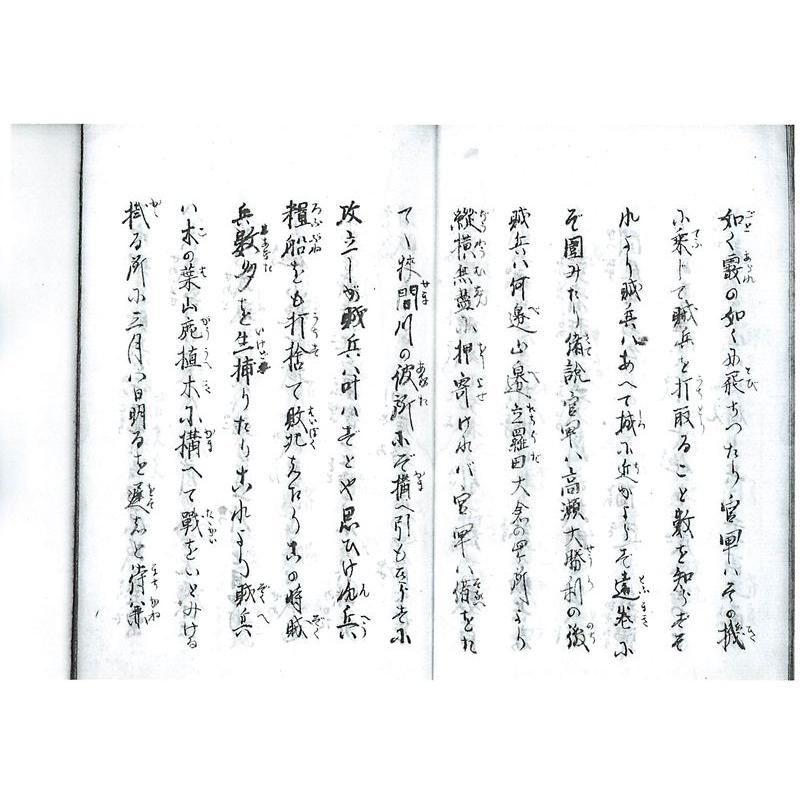 如く霰の如くぬ飛ちつたり官軍ハその機
に乗して賊兵を打取ること数を知らずそ
れより賊兵ハあへて城に近かよらそ遠巻に
ぞ囲みたり偖説官軍ハ高瀬大勝利の後
賊兵ハ何邊山邊立羅田大倉の四所より
縦横無盡に押寄けれバ官軍ハ備をた
てヽ狭間川の彼所にぞ構へ引もきらそに
攻立しが賊兵ハ叶ハそとや思ひけん兵
糧船をも打捨て敗北したりこの時賊
兵数多を生捕りたりこれより賊兵
ハ木の葉山宛植木に構へて戦をいとみける
掛る所に三月八日明るを遅しと待兼